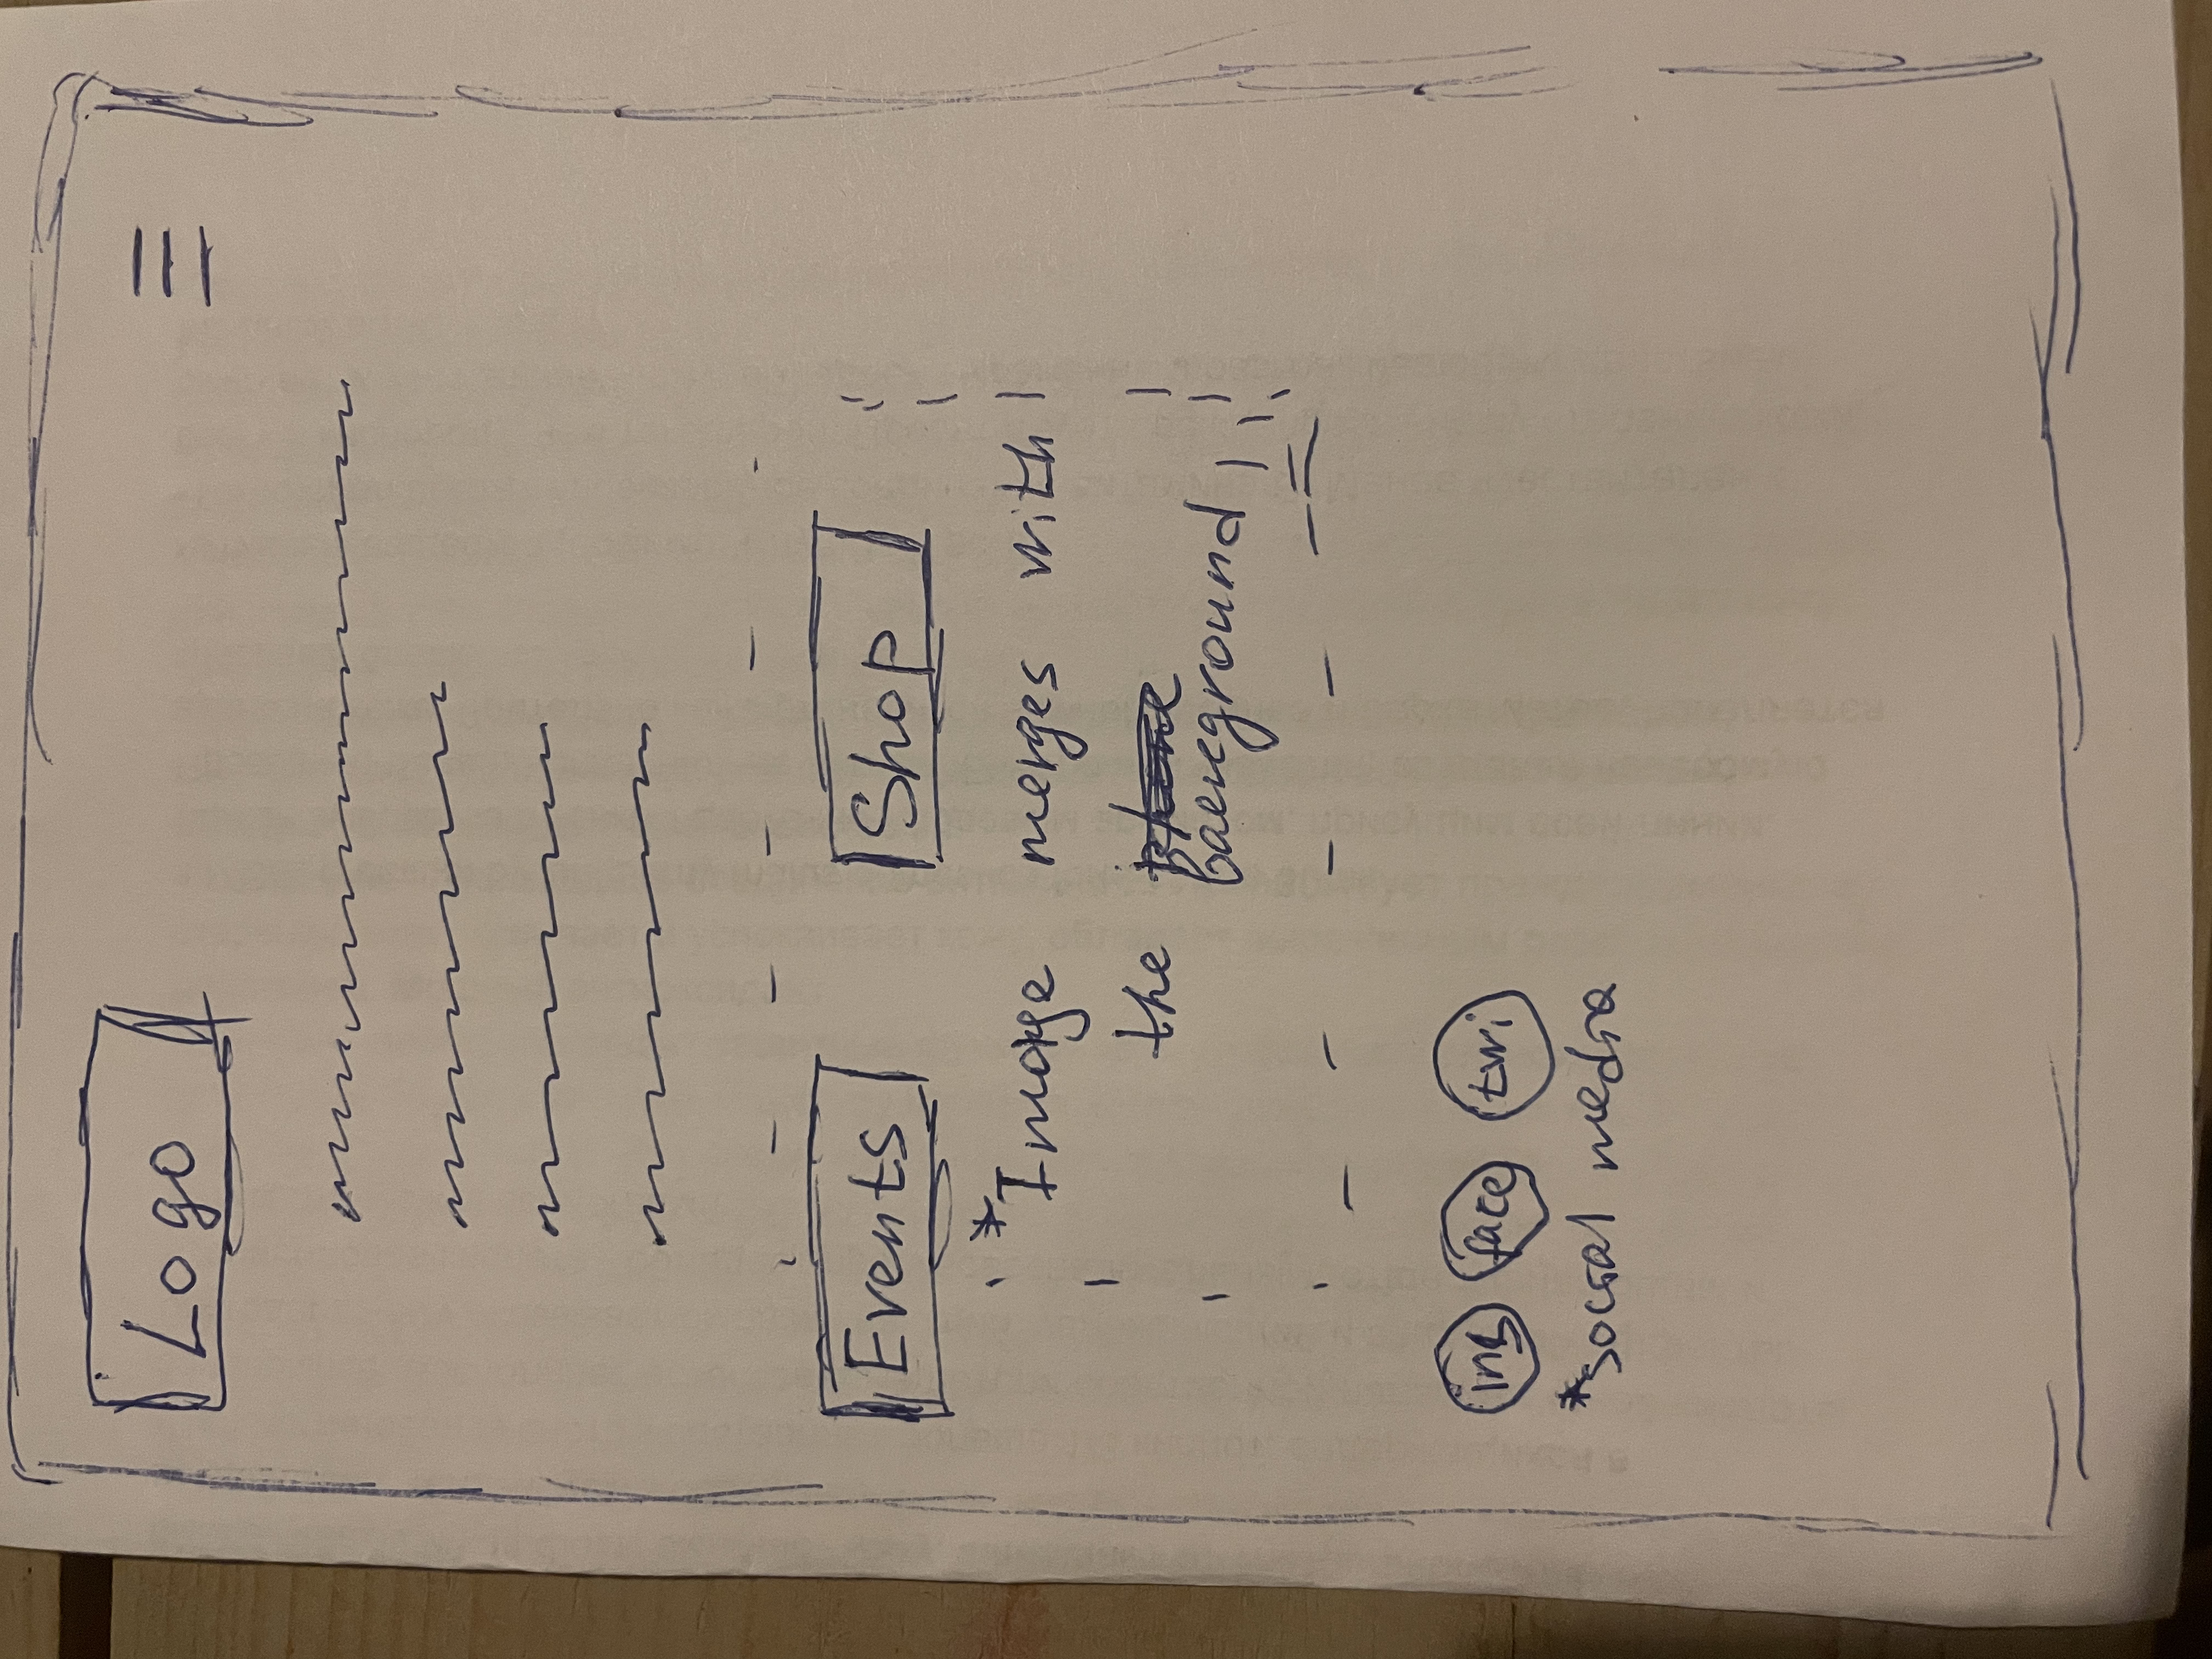 Logo
Events Shop
*Image merges with
the
background
ins face twi
*social media